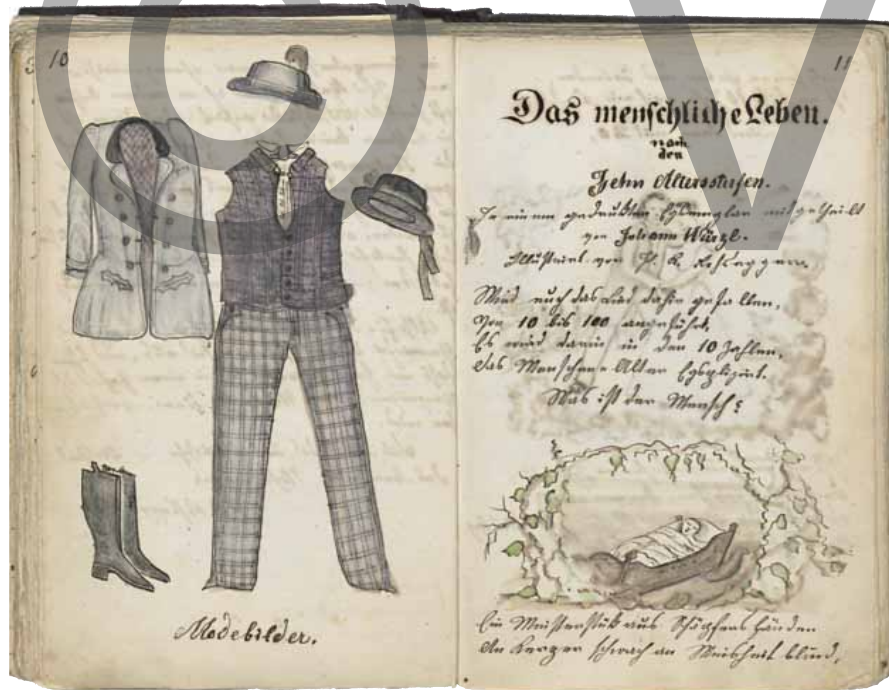 10
Modebilder.
Das menschliche Leben.
nach
den
Zehn Altersstufen.
gedrukten mitgetheilt
von Johann Würzl.
Illustrirt von P. K.
Wird euch das Lied dahin gefallen,
Von 10 bis 100 angeführt,
Es wird darin in den 10 Zahlen,
Das Menschen-Alter
Was ist der Mensch?
Ein Meisterstük aus Schöpfers Händen
An schwach an Weisheit blind,